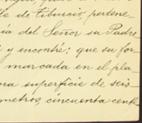 de Tiburcio, pertene-
cia del Señor su Padre
y encontré; que su for
marcada en el pla
na superficie de seis
metros, cincuenta cent